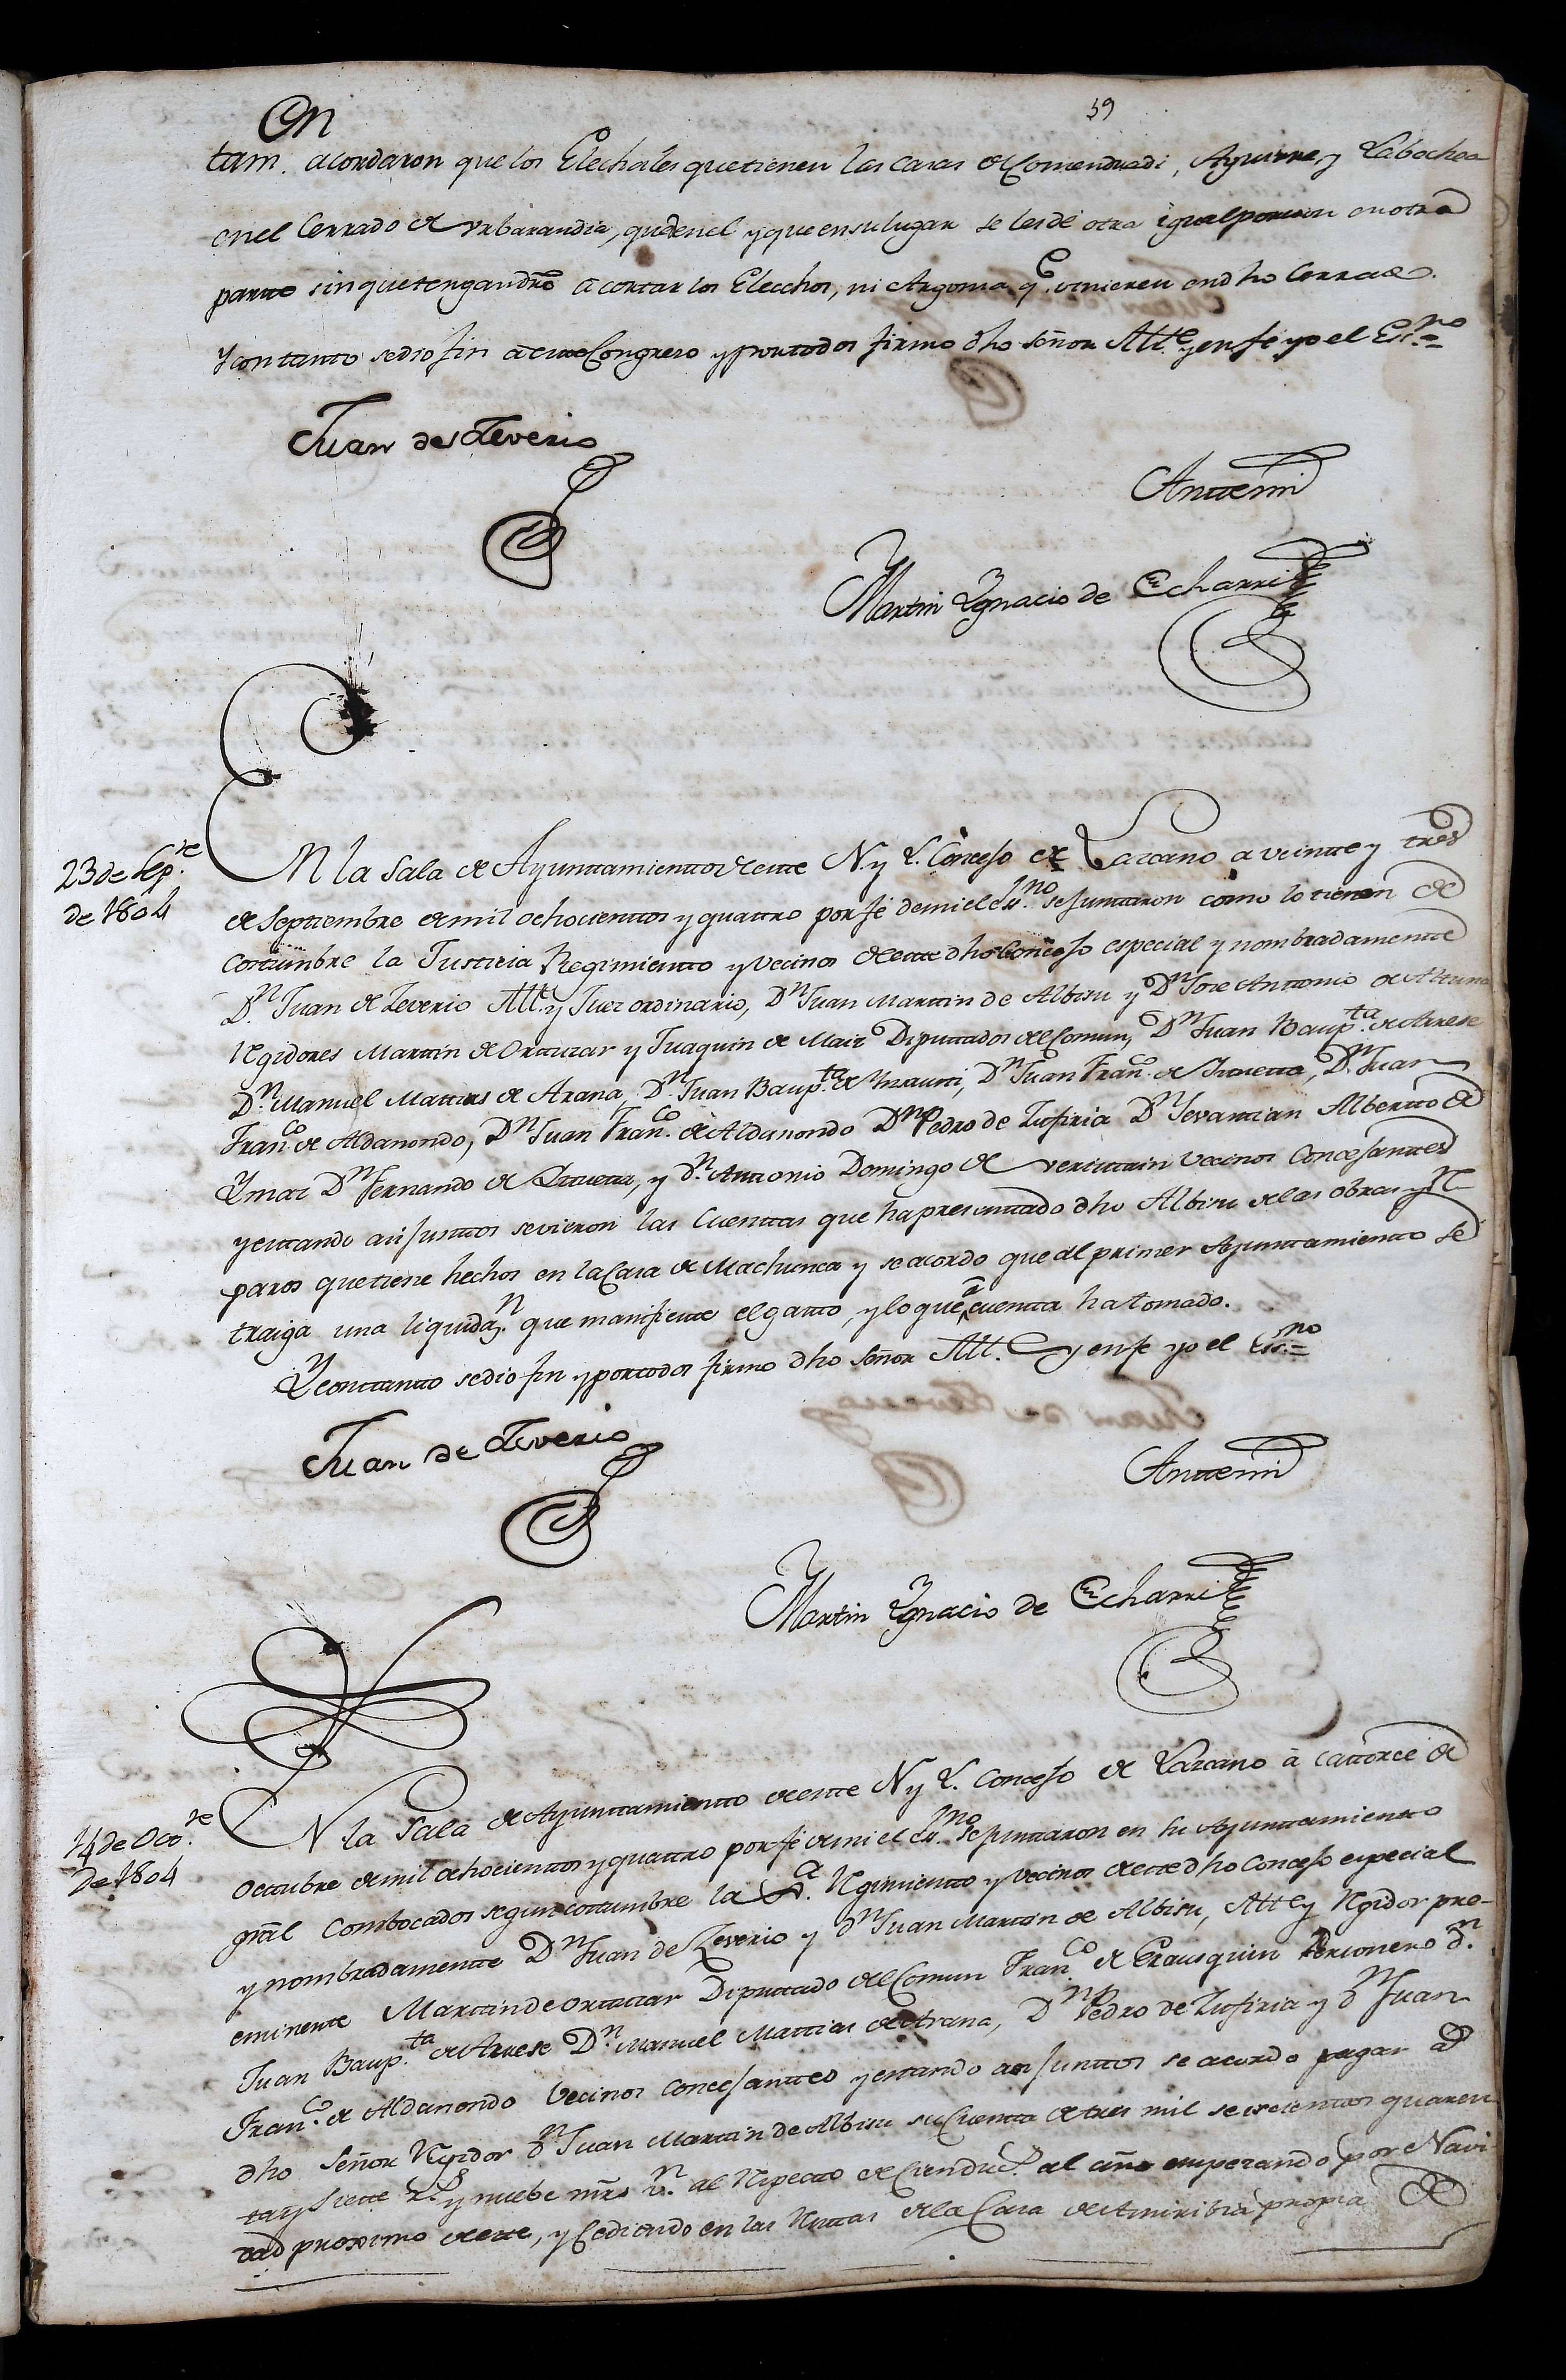 59
En
tam. acordaron que los Elechales que tienen las casas de Comendradi, Aguirre, y Labachea
en el Cerrado de Urbarandia, queden el y que en su lugar se les dé otra igual porcion en otra
parte sin que tengan dro a cortar los Elechos, ni Argoma q.e vinieren en dho Cerrado.
Y con tanto se dio fin a este Congreso y por todos firmo dho Señor Alle. y en fe yo el Es.no =
Juan de Zeverio
Antemi
Martin Ygnacio de Echarri
23 de Sep.re
de 1804
EN la Sala de Ayuntamientos de este N. y L. Concejo de Lazcano a veinte y tres
de Septiembre de mil ochocientos y quattro por fé de mi el es.no se juntaron como lo tienen de
costumbre la Justicia Regimiento y Vecinos de este dho Concejo especial y nombradamente
D.n Juan de Zeverio Alle. y Juez ordinario, D.n Juan Martin de Albisu y D.n Jose Antonio de Altuna
Regidores Martin de Ortuzar y Juaquin de Maiz Diputados del Comun, D.n Juan Baup.ta de Arrese
D.n Manuel Mattias de Arana, D.n Juan Baup.ta de Ynsausti, D.n Juan Fran.co de Yttuetta, D.n Juan
Fran.co de Aldanondo, D.n Juan Fran.co de Aldanondo D.n Pedro de Zufiria D.n Sevastian Albertto de
Ymaz D.n Fernando de Yttuetta, y d.n Anttonio Domingo de vecinos Concejantes
y estando asi juntos se vieron las Cuentas que ha presentado dho Albisu de las obras y Re
paros que tiene hechos en la Casa de Machinea y se acordo que al primer Ayuntamiento se
traiga una liquidaz.n que manifieste el gasto, y lo que à cuenta ha tomado.
Y con tanto se dio fin y por todos firmo dho Señor Alle. y en fe yo el Es.no =
Juan de Zeverio
Antemi
Martin Ygnacio de Echarri
14 de Oct.re
de 1804
EN la Sala de Ayuntamiento de este N. y L. Concejo de Lazcano à catorce de
Octubre de mil ochocientos y quattro por fé de mi el es.no se juntaron en su Ayuntamiento
gral Combocados segun costumbre la Regimiento y Vecinos de este dho Concejo especial
y nombradamente D.n Juan de Zeverio y d.n Juan Martin de Albisu, Alle. y Regidor pre-
eminente Martin de Ortuzar Diputado del Comun Fran.co de Erausquin Personero d.n
Juan Baup.ta de Arrese D.n Manuel Mattias de Arana, D.n Pedro de Zufiria y d.n Juan
Fran.co de Aldanondo Vecinos Concejantes y estando asi juntos se acordo pagar a
dho Señor Regidor d.n Juan Martin de Albisu su Cuenta de tres mil seiscientos quaren
ta y siete r.s y nuebe mrs v.n al respecto de Cien duc.s al año empezando por Navi
dad proximo de este, y Cediendo en las Rentas de la Casa de propia de